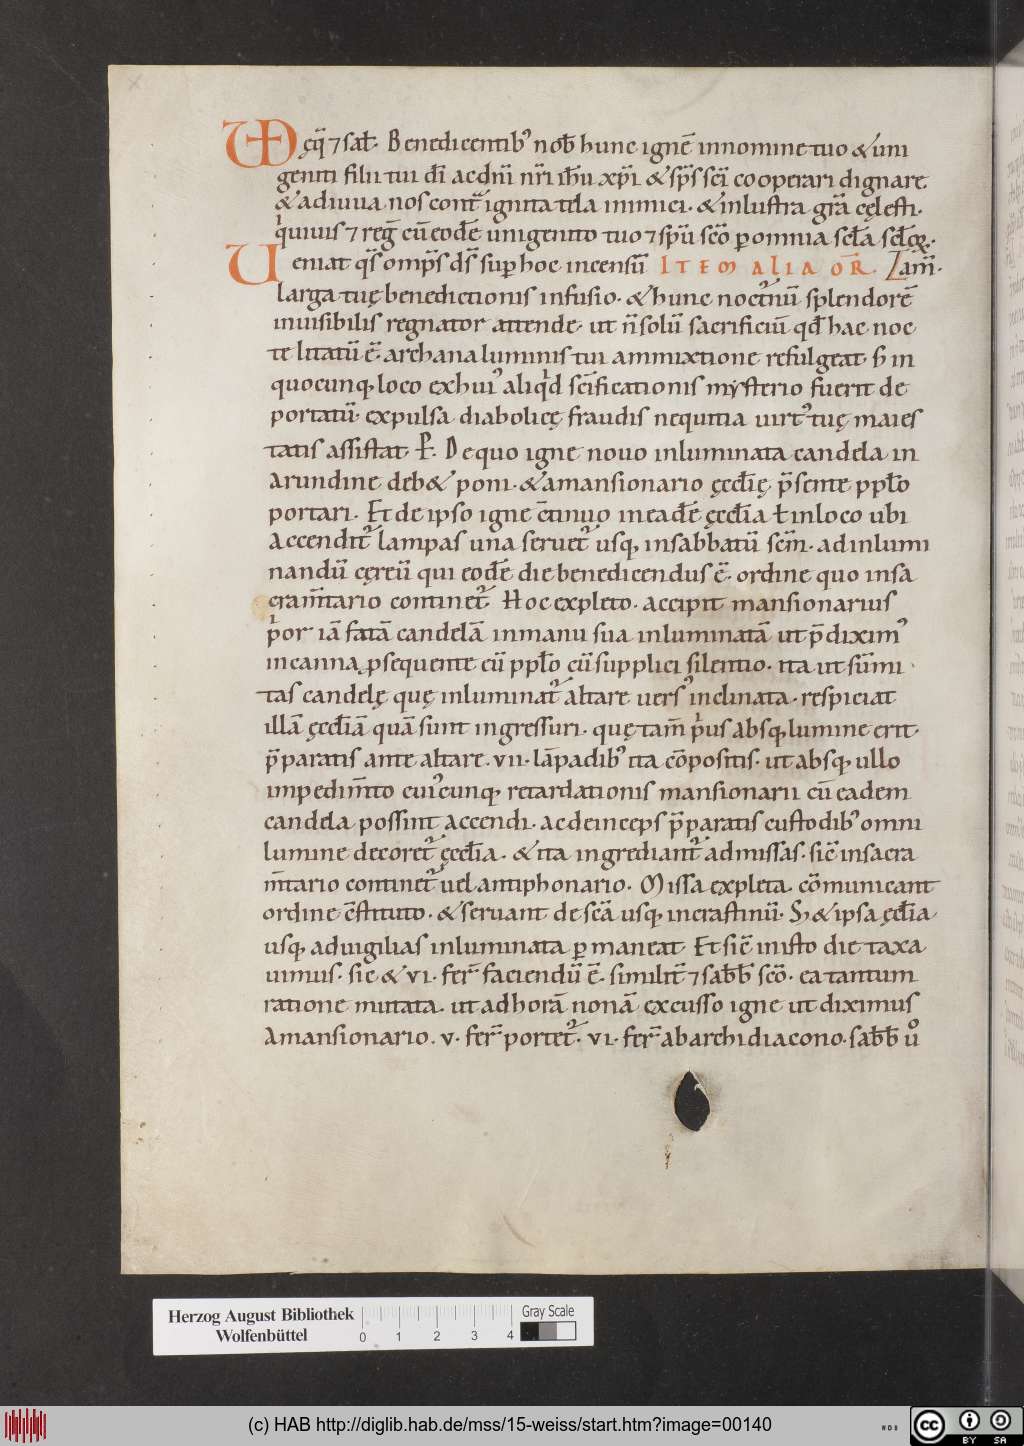 VD ęq̄ ⁊ salt̄. Benedicentib᾽ nob̄ hunc ignē in nomine tuo & uni
geniti filii tui dī ac dn̄i nr̄i ih̄u xp̄i & sp̄s sc̄i cooperari dignare.
& adiuua nos cont̄ ignita tela inimici. & inlustra gr̄a cęlesti.
qui uiuis ⁊ reḡ cū eodē unigenito tuo ⁊ sp̄u sc̄o ꝑ omnia sc̄la sc̄loꝝ.
Ueniat q̄s omp̄s d̄s sup hoc incensū ITEM ALIA OR̄. Lam̄.
larga tuę benedictionis infusio. & hunc nocturnū splendorē
inuisibilis regnator attende. ut n̄ solū sacrificiū qd̄ hac noc
te litatū ē. archana luminis tui ammixtione refulgeat. s̄ in
quocunq; loco ex hui᾽ aliqd sc̄ificationis mysterio fuerit de
portatū. expulsa diabolicę fraudis nequitia uirt᾽ tuę maies
tatis assistat. P̄. De quo igne nouo inluminata candela in
arundine deb& poni. & a mansionario ęcclīę p̄sente ppl̄o
portari. Et de ipso igne c̄tinuo in eadē ęccl̄ia ł in loco ubi
accendit᾽ lampas una seruet᾽ usq; in sabbatū sc̄m. ad inlumi
nandū cęreū qui eodē die benedicendus ē. ordine quo in sa
cram̄tario continet᾽. Hoc expleto. accipit mansionarius
p̄or iā fatā candelā in manu sua inluminatā ut p̄dixim᾽
in canna ꝓsequente cū ppl̄o cū supplici silentio. ita ut sūmi
tas candelę quę inluminat᾽ altare uers᾽ inclinata. respiciat
illā ęccl̄iā quā sunt ingressuri. quę tam̄ p̄us absq; lumine erit.
p̄paratis ante altare. vii. lāpadib᾽ ita cōpositis. ut absq; ullo
impedim̄to cui᾽cunq; retardationis mansionarii cū eadem
candela possint accendi. ac deinceps p̄paratis custodib᾽ omni
lumine decoret᾽ ęccl̄ia. & ita ingrediant᾽ ad missas. sic̄ in sacra
m̄tario continet᾽ uel antiphonario. Missa expleta. cōmunicant
ordine c̄stituto. & seruant de sc̄a usq; in crastinū. S; & ipsa ęccl̄ia
usq; ad uigilias inluminata ꝑmaneat. Et sic̄ in isto die taxa
uimus. sic & vi. fer̄ faciendū ē. similit̄ ⁊ sabb̄ sc̄o. ea tantum
ratione mutata. ut ad horā nonā excusso igne ut diximus
a mansionario. v. fer̄ portet᾽. vi. fer̄ ab archidiacono. sabb̄ uͦ
Herzog August Bibliothek
Wolfenbüttel
0 1 2 3 4
Gray Scale
(c) HAB http://diglib.hab.de/mss/15-weiss/start.htm?image=00140
cc BY SA